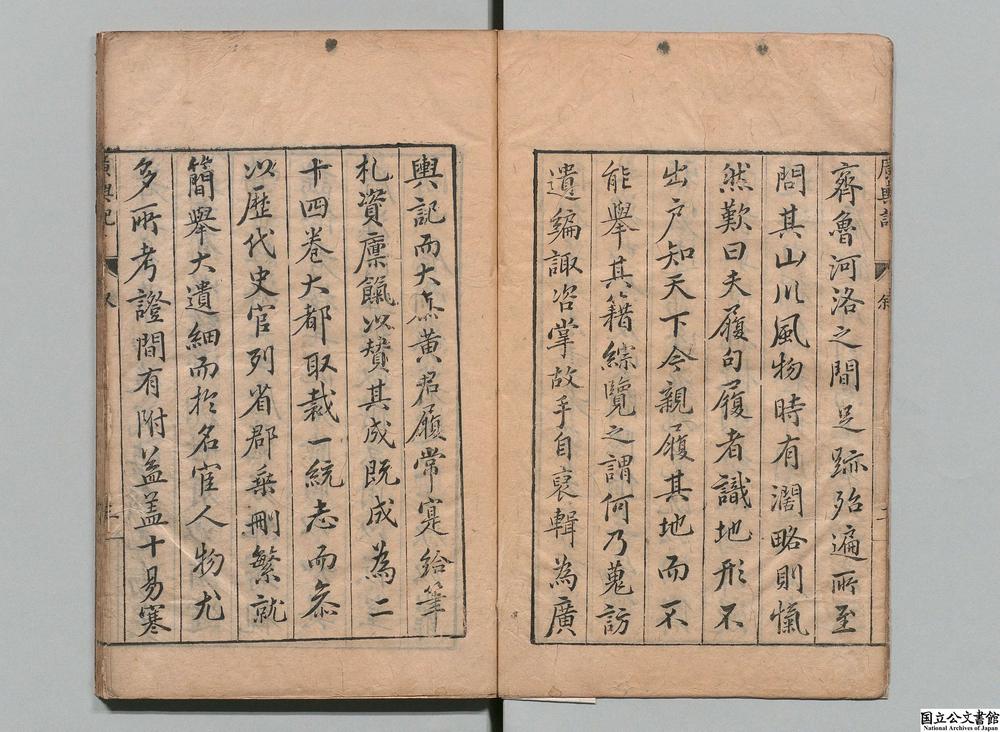 齊魯河洛之間足跡殆遍所至
問其山川風物時有濶略則愾
然歎曰夫履句履者識地形不
出户知天下今親履其地而不
能舉其籍綜覽之謂何乃蒐訪
遺編諏咨掌故手自裒輯為廣
輿記而大亦黄君履常寔給筆
札資廩餼以賛其成既成為二
十四卷大都取裁一統志而叅
以歷代史官列省郡乗刪繁就
簡舉大遺細而於名宦人物尤
多所考證間有附益盖十易寒
廣輿記
叙
二
廣輿記
叙
三
国立公文書館
National Archives of Japan